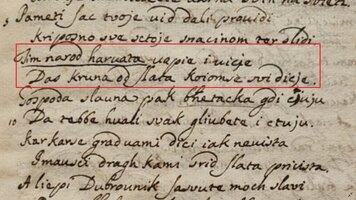 Pameti jac tvoje uid dali prauidi
Kriposno sve sctoje sracinom ter slidi
Sim narod haruata uapie i uicje
Das kruna od slata koiomse svi dicje.
Gospoda slauna pak gdi cjuju
10 Da tebbe huali svak gliubete i ctuju.
Kakarse graduami dici iak neuista
Imausci dragh kami srid slata pricista.
A liepi Dubrounik sasvute moch slavi